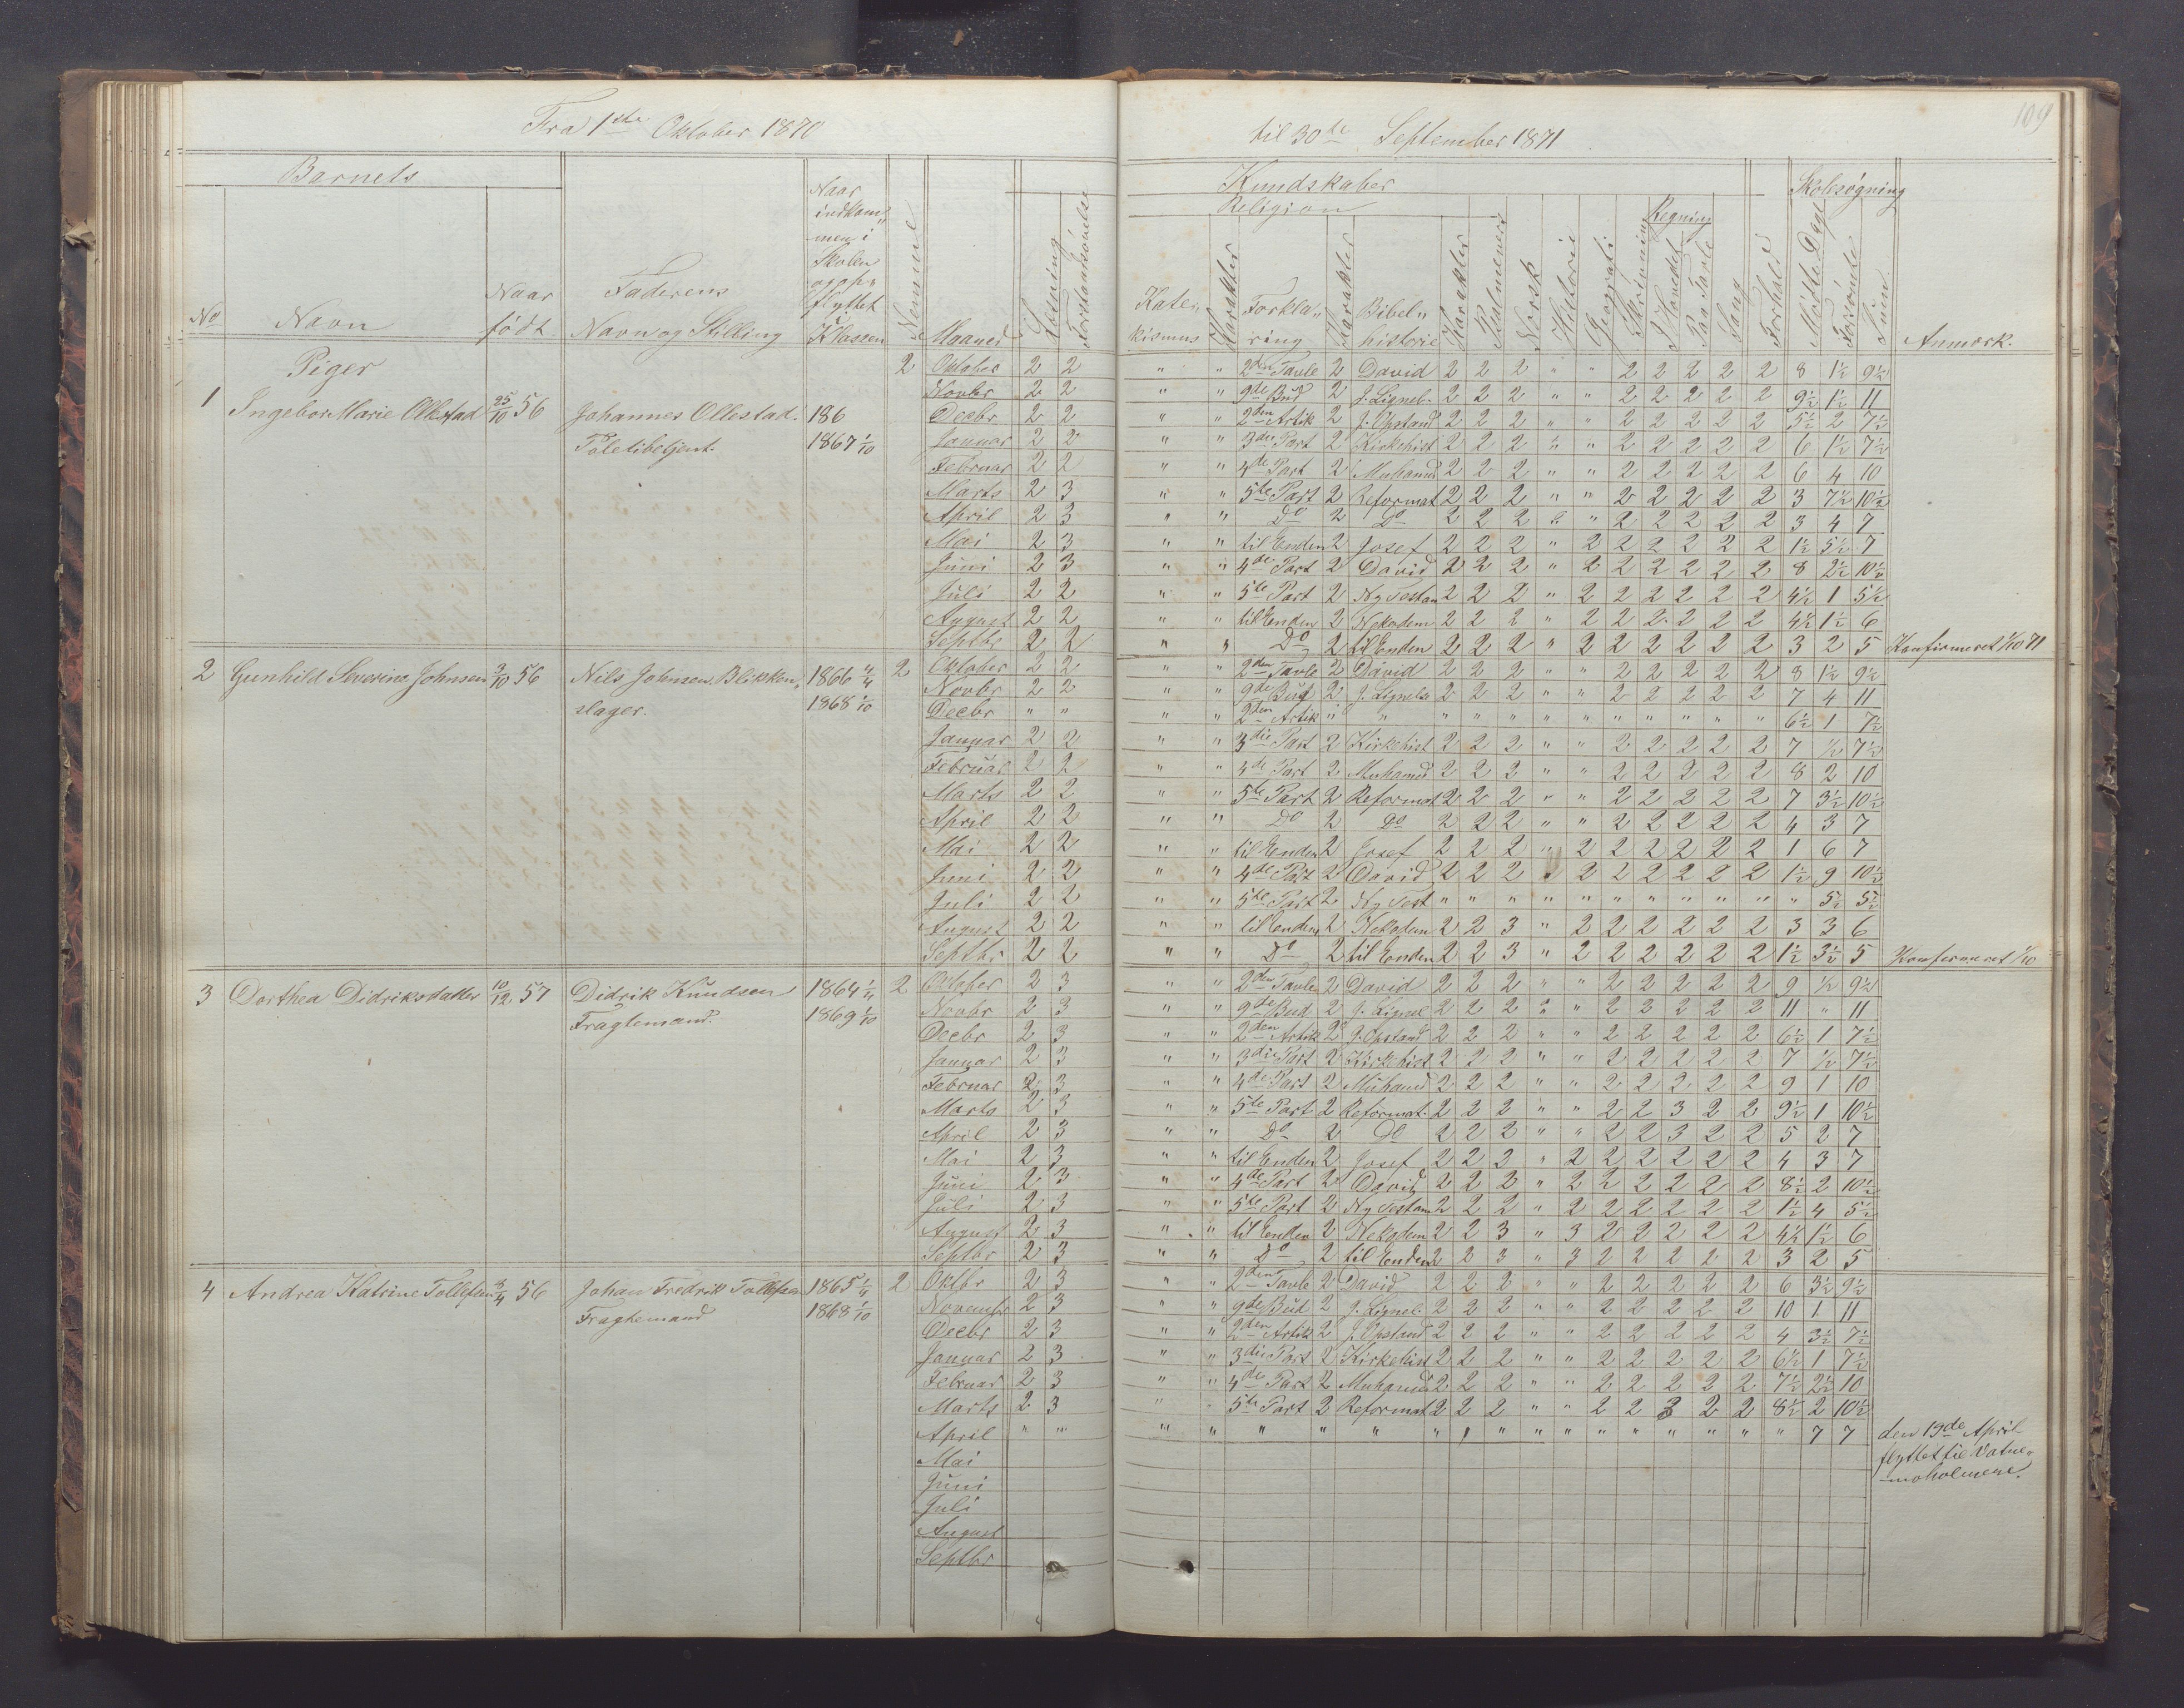 Fra 1ste Oktober 1870 til 30te September 1871
109
Barnets
No
Navn
Naar født
Faderens Navn og Stilling
Naar indkommen i Skolen
Nemme
Maaned
Læsning
Forstandsøvelse
Kundskaber
Religion
Katekismus
Karakter
Forklaring
Karakter
Bibelhistorie
Karakter
Psalmevers
Norsk
Historie
Geografi
Skrivning
Regning
I Hovedet
Paa Tavle
Sang
Forhold
Skolesøgning
Mødte Dage
Forsømte
Sum
Anmærk.
Piger
1 Ingebor Marie Ollestad 25/10 56 Johannes Ollestad. Politibetjent. 186 1867 1/10 2
Oktober 2 2 " " 2den Tavle 2 David 2 2 2 " " 2 2 2 2 2 8 1½ 9½
Novbr 2 2 " " 9de Bud 2 J. Lignel. 2 2 2 " " 2 2 2 2 2 9½ 1½ 11
Decbr 2 2 " " 2den Artik 2 J. Opstand 2 2 2 " " 2 2 2 2 2 5½ 2 7½
Januar 2 2 " " 3die Part 2 Kirkehist 2 2 2 " " 2 2 2 2 2 6 1½ 7½
Februar 2 2 " " 4de Part 2 Muhamed 2 2 2 " " 2 2 2 2 2 6 4 10
Marts 2 3 " " 5te Part 2 Reformat 2 2 2 " " 2 2 2 2 2 3 7½ 10½
April 2 3 " " Do 2 Do 2 2 2 " " 2 2 2 2 2 3 4 7
Mai 2 3 " " til Enden 2 Josef 2 2 2 " 2 2 2 2 2 2 1½ 5½ 7
Juni 2 3 " " 4de Part 2 David 2 2 2 " 2 2 2 2 2 2 8 2½ 10½
Juli 2 2 " " 5te Part 2 Ny Testam 2 2 2 " 2 2 2 2 2 2 4½ 1 5½
August 2 2 " " til Enden 2 Nekodem 2 2 2 " 2 2 2 2 2 2 4½ 1½ 6
Septbr 2 2 " " Do 2 til Enden 2 2 2 " 2 2 2 2 2 2 3 2 5 Konfirmeret 1/10 71
2 Gunhild Severine Johnsen 9/10 56 Nils Johnsen. Blikkenslager. 1866 4/4 1868 1/10 2
Oktober 2 2 " " 2den Tavle 2 David 2 2 2 " " 2 2 2 2 2 8 1½ 9½
Novbr 2 2 " " 9de Bud 2 J. Lignels 2 2 2 " " 2 2 2 2 2 7 4 11
Decbr " " " " 2den Artik " " " " " " " " " " " " 6½ 1 7½
Januar 2 2 " " 3die Part 2 Kirkehist 2 2 2 " " 2 2 2 2 2 7 ½ 7½
Februar 2 2 " " 4de Part 2 Muhamed 2 2 2 " " 2 2 2 2 2 8 2 10
Marts 2 2 " " 5te Part 2 Reformat 2 2 2 " " 2 2 2 2 2 7 3½ 10½
April 2 2 " " Do 2 Do 2 2 2 " " 2 2 2 2 2 4 3 7
Mai 2 2 " " til Enden 2 Josef 2 2 2 " 2 2 2 2 2 2 1 6 7
Juni 2 2 " " 4de Part 2 David 2 2 2 " 2 2 2 2 2 2 1½ 9 10½
Juli 2 2 " " 5te Part 2 Ny Test " " " " " " " " " " " 5½ 5½
August 2 2 " " til Enden 2 Nekodem 2 2 3 " 2 2 2 2 2 2 3 3 6
Septbr 2 2 " " Do 2 til Enden 2 2 3 " 2 2 2 2 2 2 1½ 3½ 5 Konfirmeret 1/10
3 Dorthea Didriksdatter 10/12 57 Didrik Knudsen Fragtemand. 1864 1/4 1869 1/10 2
Oktober 2 3 " " 2den Tavle 2 David 2 2 2 " " 2 2 2 2 2 9 ½ 9½
Novbr 2 3 " " 9de Bud 2 J. Lignel 2 2 2 " " 2 2 2 2 2 11 " 11
Decbr 2 3 " " 2den Artik 2 J. Opstand 2 2 2 " " 2 2 2 2 2 6½ 1 7½
Januar 2 3 " " 3die Part 2 Kirkehist 2 2 2 " " 2 2 2 2 2 7 ½ 7½
Februar 2 3 " " 4de Part 2 Muhamed 2 2 2 " " 2 2 2 2 2 9 1 10
Marts 2 3 " " 5te Part 2 Reformat. 2 2 2 " " 2 2 3 2 2 9½ 1 10½
April 2 3 " " Do 2 Do 2 2 2 " " 2 2 3 2 2 5 2 7
Mai 2 3 " " til Enden 2 Josef 2 2 2 " 2 2 2 2 2 2 4 3 7
Juni 2 3 " " 4de Part 2 David 2 2 2 " 2 2 2 2 2 2 8½ 2 10½
Juli 2 3 " " 5te Part 2 Ny Testam 2 2 2 " 2 2 2 2 2 2 1½ 4 5½
August 2 3 " " til Enden 2 Nekodem 2 2 3 " 3 2 2 2 2 2 4½ 1½ 6
Septbr 2 3 " " Do 2 til Enden 2 2 3 " 3 2 2 2 2 2 3 2 5
4 Andrea Katrine Tollefsen 56 Johan Fredrik Tollefsen Fragtemand 1865 1/4 1868 1/10 2
Oktbr 2 3 " " 2den Tavle 2 David 2 2 2 " " 2 2 2 2 2 6 3½ 9½
Novembr 2 3 " " 9de Bud 2 J. Lignel. 2 2 2 " " 2 2 2 2 2 10 1 11
Decbr 2 3 " " 2den Artik 2 J. Opstand 2 2 2 " " 2 2 2 2 2 4 3½ 7½
Januar 2 3 " " 3die Part 2 Kirkehist 2 2 2 " " 2 2 2 2 2 6½ 1 7½
Februar 2 3 " " 4de Part 2 Muhamed 2 2 2 " " 2 2 2 2 2 7½ 2½ 10
Marts 2 3 " " 5te Part 2 Reformat 2 2 2 " " 2 2 3 2 2 8½ 2 10½
April " " " " " " " " " " " " " " " " " " 7 7 den 19de April
flyttet til Vatne-
moholmene.
Mai
Juni
Juli
August
Septbr